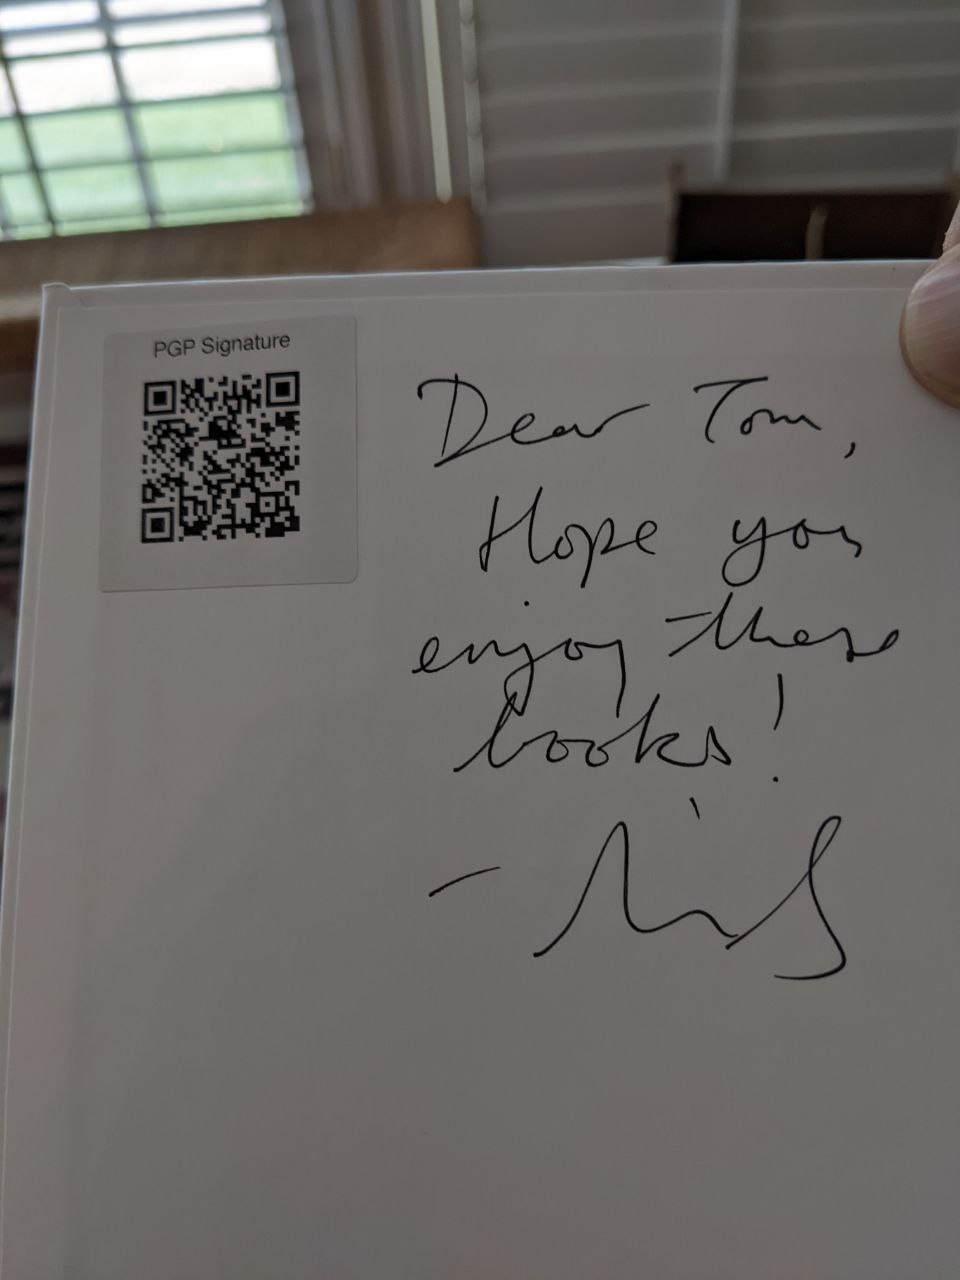 PGP Signature
Dear Tom,
Hope you
enjoy these
books!